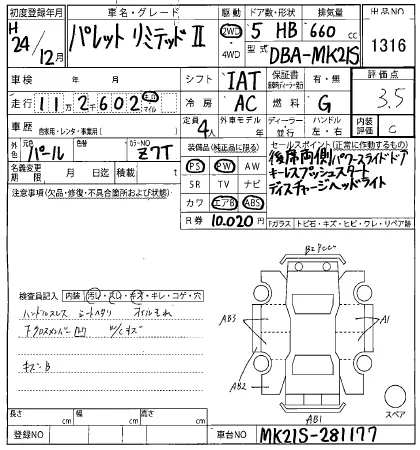 初度登録年月 車名・グレード 駆動 ドア数・形状 排気量 出品NO
H24/12月 パレット リミテッドⅡ 2WD 4WD 5 HB 660cc 1316
型式 DBA-MK21S
車検 年 月 シフト IAT 保証書 有・無 評価点
走行 11万2千602 キロ マイル 冷房 AC 燃料 G 3.5
車歴 自家用・レンタ・事業用( ) 定員 4人 外車モデル 年 ディーラー 並行 ハンドル 左・右 内装評価 C
外色 元色 パール カラーNO Z7T 装備品(純正品に限る) セールスポイント(正常に作動するもの)
名義変更期限 月 日迄 積載 t PS PW AW 後席両側パワースライドドア
注意事項(欠品・修復・不具合箇所および状態) SR TV ナビ キーレスプッシュスタート
カワ エアB ABS ディスチャージヘッドライト
R券 10.020円 Fガラス トビ石・キズ・ヒビ・ワレ・リペア跡
検査員記入 内装 汚れ・スレ・キズ・キレ・コゲ・穴
ハンドルスレス シートヘタリ オイルもれ
キズB
AB3
A1
AB2
AB1
スペア
長さ cm 幅 cm 高さ cm
登録NO 車台NO MK21S-281177